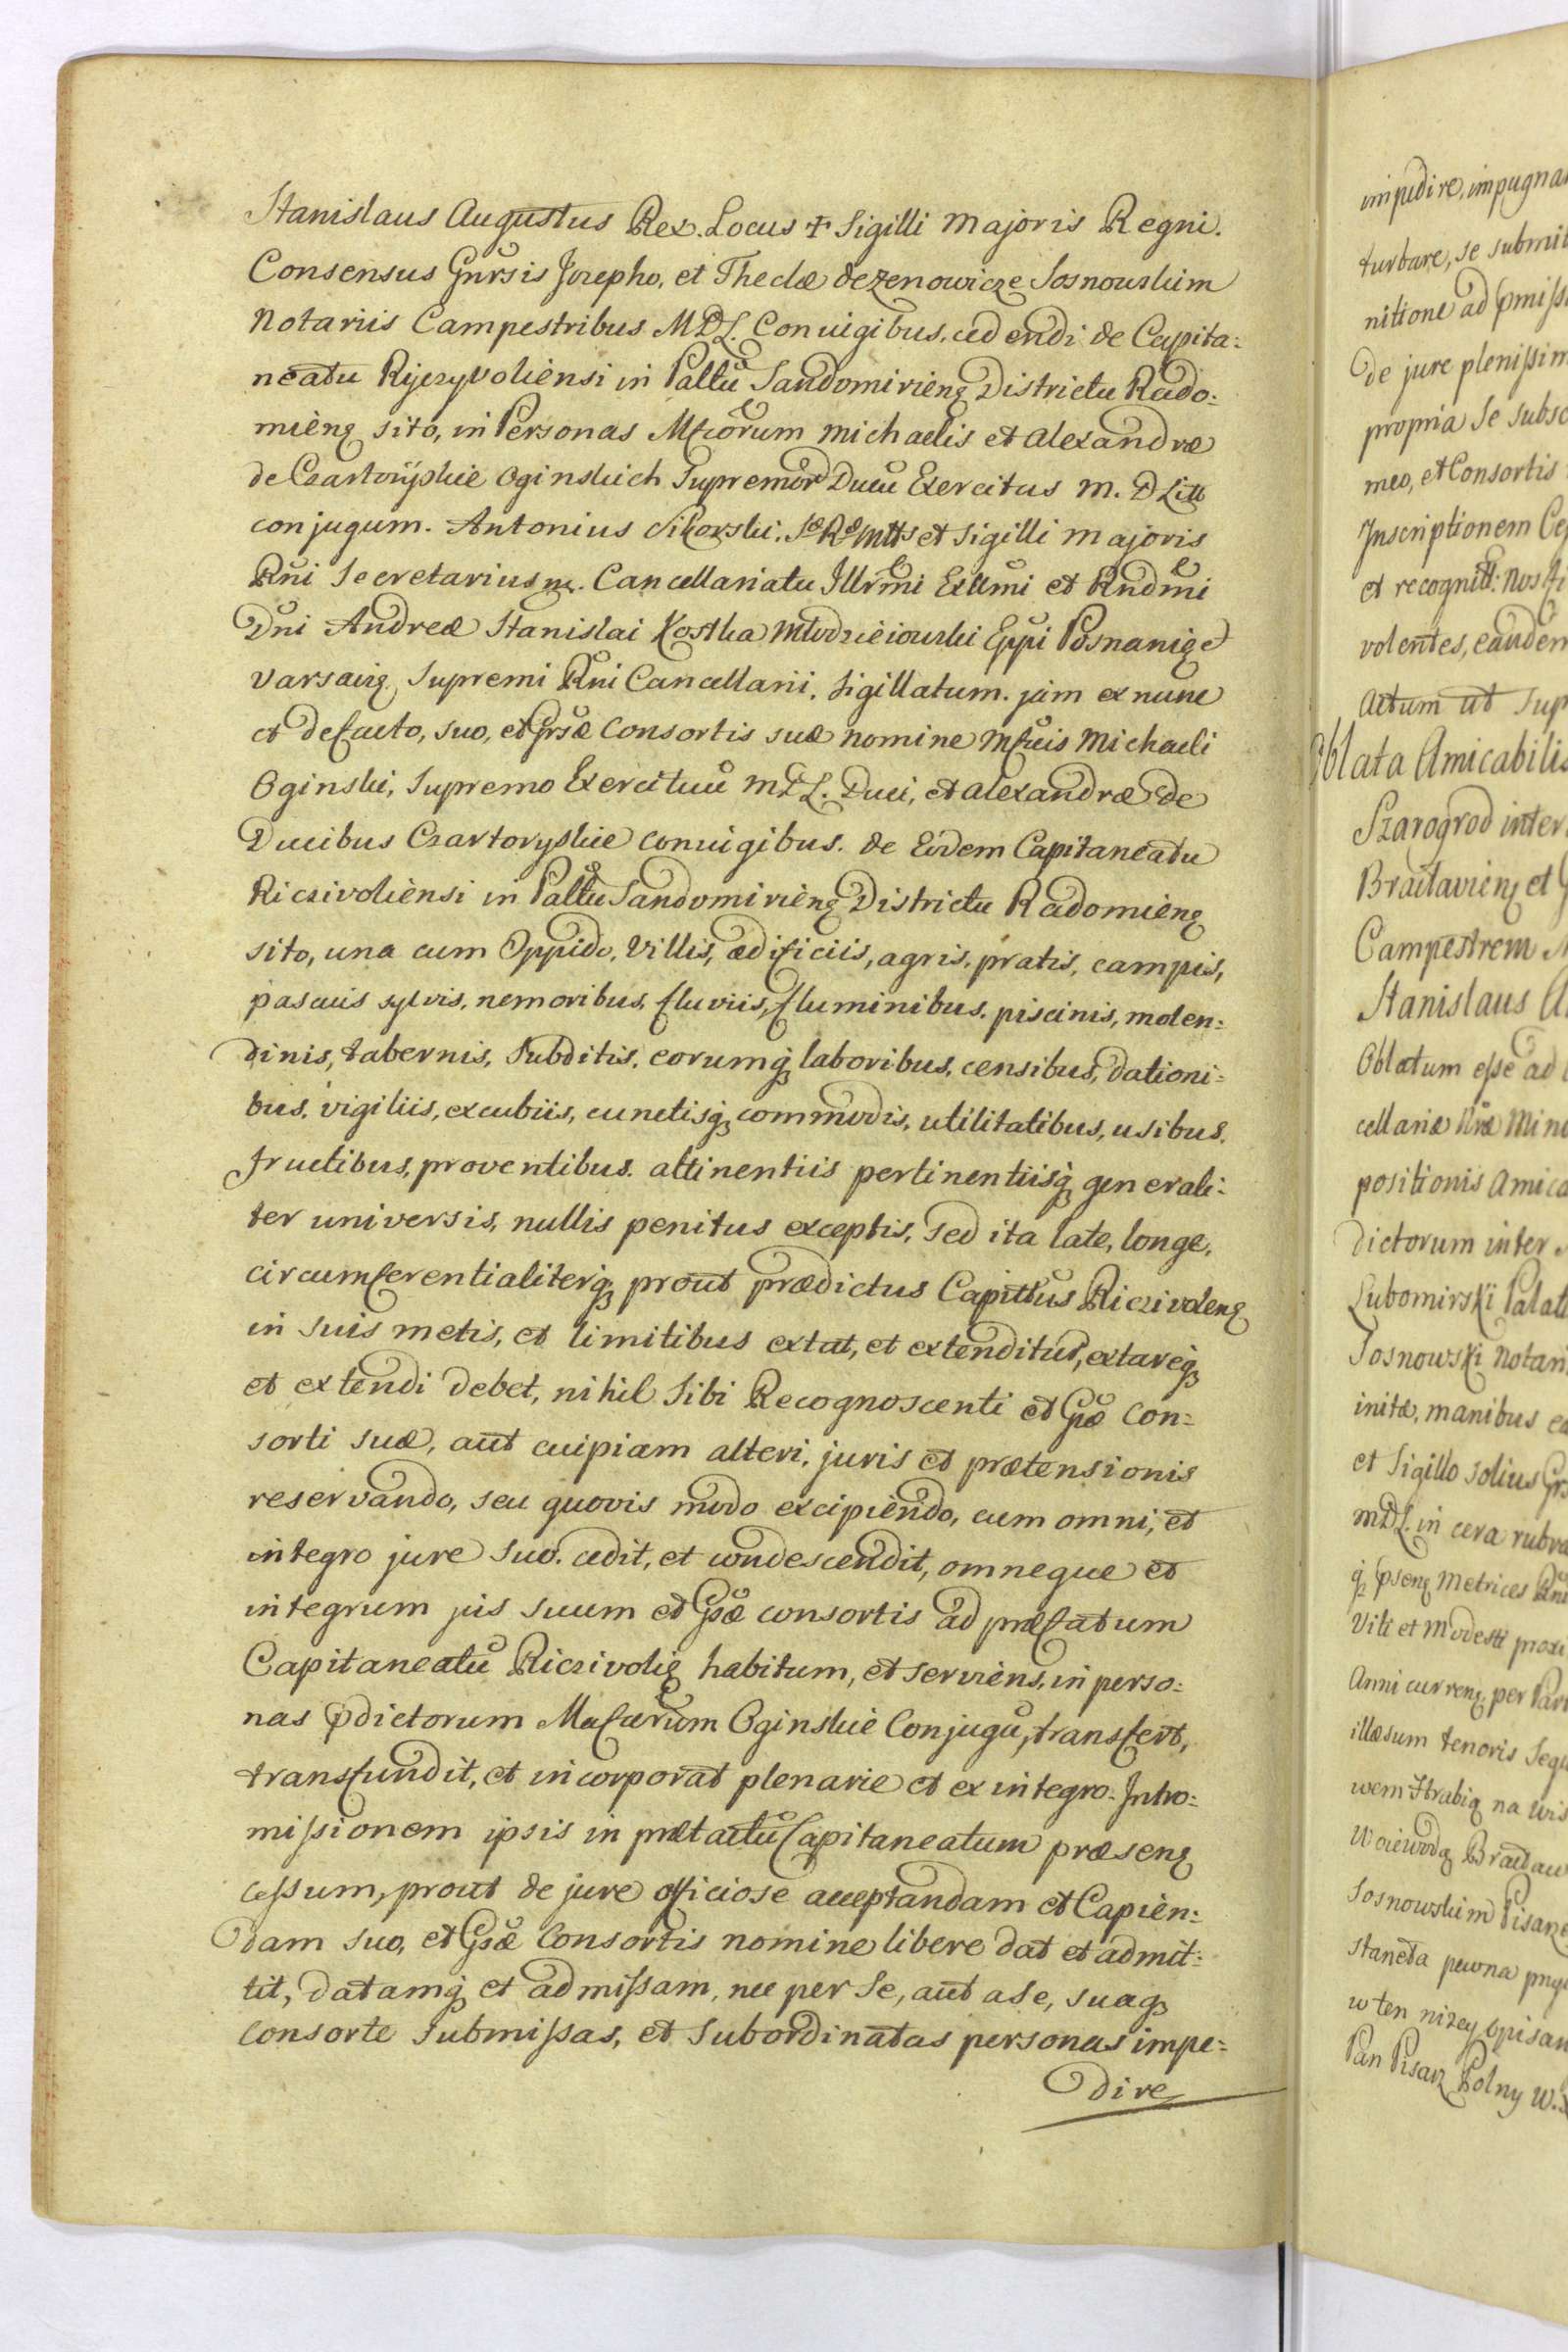 Stanislaus Augustus Rex. Locus + Sigilli Majoris Regni.
Consensus Gnrsis Jozepho, et Theclæ de Zenowicze Sosnowskim
Notariis Campestribus MDL. Coniugibus, cedendi de Capita:
neatu Ryczyvoliensi in Palttu Sandomirienş Districtu Rado:
mienş sito, in Personas Mfcorum Michaelis et Alexandræ
de Czartoryskie Oginskich Supremor Ducu Exercitus M. D Litt
conjugum. Antonius Sikorski. Sæ Ræ Mttis et Sigilli Majoris
Rni Secretarius mp. Cancellariatu Illrmi Exllmi et Rndmi
Dni Andreæ Stanislai Kostka Młodzieiowski Eppi Posnanię et
Varsavię Supremi Rni Cancellarii. Sigillatum. jam ex nunc
et de facto, suo, et Grsæ Consortis suæ nomine Mfcis Michaeli
Oginski, Supremo Exercituu MDL. Duci, et Alexandræ de
Ducibus Czartoryskie coniugibus. de Eodem Capitaneatu
Riczivoliensi in Palttu Sandomirienş Districtu Radomienş
sito, una cum Oppido, Villis, ædificiis, agris, pratis, campis,
pascuis sylvis, nemoribus, fluviis, fluminibus. piscinis, molen:
dinis, tabernis, Subditis, eorumq laboribus, censibus, dationi:
bus, vigiliis, excubiis, cunctisq commodis, utilitatibus, usibus.
fructibus, proventibus. attinentiis pertinentiisq generali:
ter universis, nullis penitus exceptis, Sed ita late, longe,
circumferentialiterq prout prædictus Capittus Riczivolenş
in suis metis, et limitibus extat, et extenditur, extareq
et extendi debet, nihil Sibi Recognoscenti et Gsæ Con:
sorti suæ, aut cuipiam alteri, juris et prætensionis
reservando, seu quovis modo excipiendo, cum omni, et
integro jure Suo. cedit, et condescendit, omneque et
integrum jus suum et Gsæ consortis ad præfatum
Capitaneatu Riczivolię habitum, et serviens, in perso:
nas pdictorum Mafcorum Oginskie Conjugu, transfert,
transfundit, et incorporat plenarie et ex integro. Intro:
missionem ipsis in prætactu Capitaneatum præsenş
cessum, prout de jure officiose acceptandam et Capien:
dam suo, et Gsæ Consortis nomine libere dat et admit:
tit, datamq et admissam, nec per Se, aut a Se, suaq
consorte Submissas, et Subordinatas personas impe:
dire
impedire, impugna
turbare, se submit
nitione ad pmiss
de jure plenissim
propria Se subsc
meo, et Consortis
Inscriptionem Ce
et recognitt. Nos
volentes, eandem
Actum ut Sup
Oblata Amicabilis
Szarogrod inter
Bracłavienş et
Campestrem
Stanislaus A
Oblatum esse ad
cellariæ Nræ Mino
positionis Amica
dictorum inter
Lubomirski Palat
Sosnowski Notari
initæ, manibus ea
et Sigillo solius Grs
MDL. in cera rubra
q psenş Metrices Rni
Vili et Modesti proxi
Anni currenş per
illæsum tenoris Sequ
wem Hrabią na Wis
Woiewodą Bracław
Sosnowskim Pisarze
stancta pewna
w ten niżey opisan
Pan Pisarz Polny W.